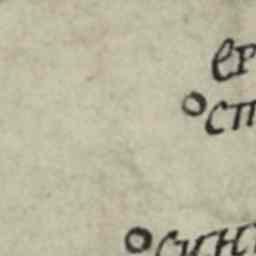 ер
ст
син